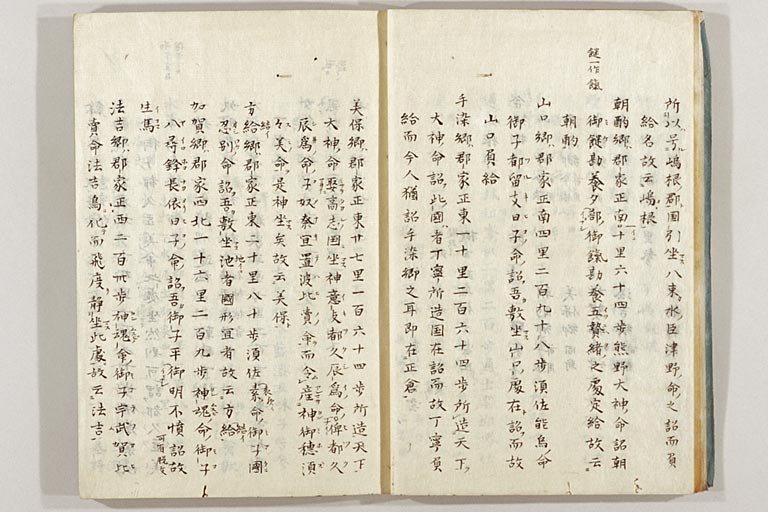 所以号嶋根郡国引坐八束水臣津野命之詔而負
給名故云嶋根
朝酌郷郡家正南一十里六十四歩熊野大神命詔朝
饌一作𩜙
御饌勘養夕御饌勘養五贄緒之處定給故云
朝酌
山口郷郡家正南四里二百九十八歩須佐能烏命
御子都留支日子命詔吾敷坐山口處在詔而故
山口負給
手染郷郡家正東一十里二百六十四歩所造天下
大神命詔此國者丁寧所造国在詔而故丁寧負
給而今人猶詔手染郷之耳即在正倉
美保郷郡家正東廿七里一百六十四歩所造天下
大神命娶高志国坐神意支都久辰為命俾都久
辰為命子奴奈宜置波比賣命而令産神御穂須
々美命是神坐矣故云美保
方給郷郡家正東二十里八十歩須佐素命御子國
忍別命詔吾敷坐池者國形宜者故云方給
加賀郷郡家西北一十六里二百九歩神魂命御子
八尋鋒長依日子命詔吾御子平御明不憤詔故
生馬
法吉郷郡家正西二百卅歩神魂命御子宇武賀比
賣命法吉鳥化而飛度静坐此處故云法吉